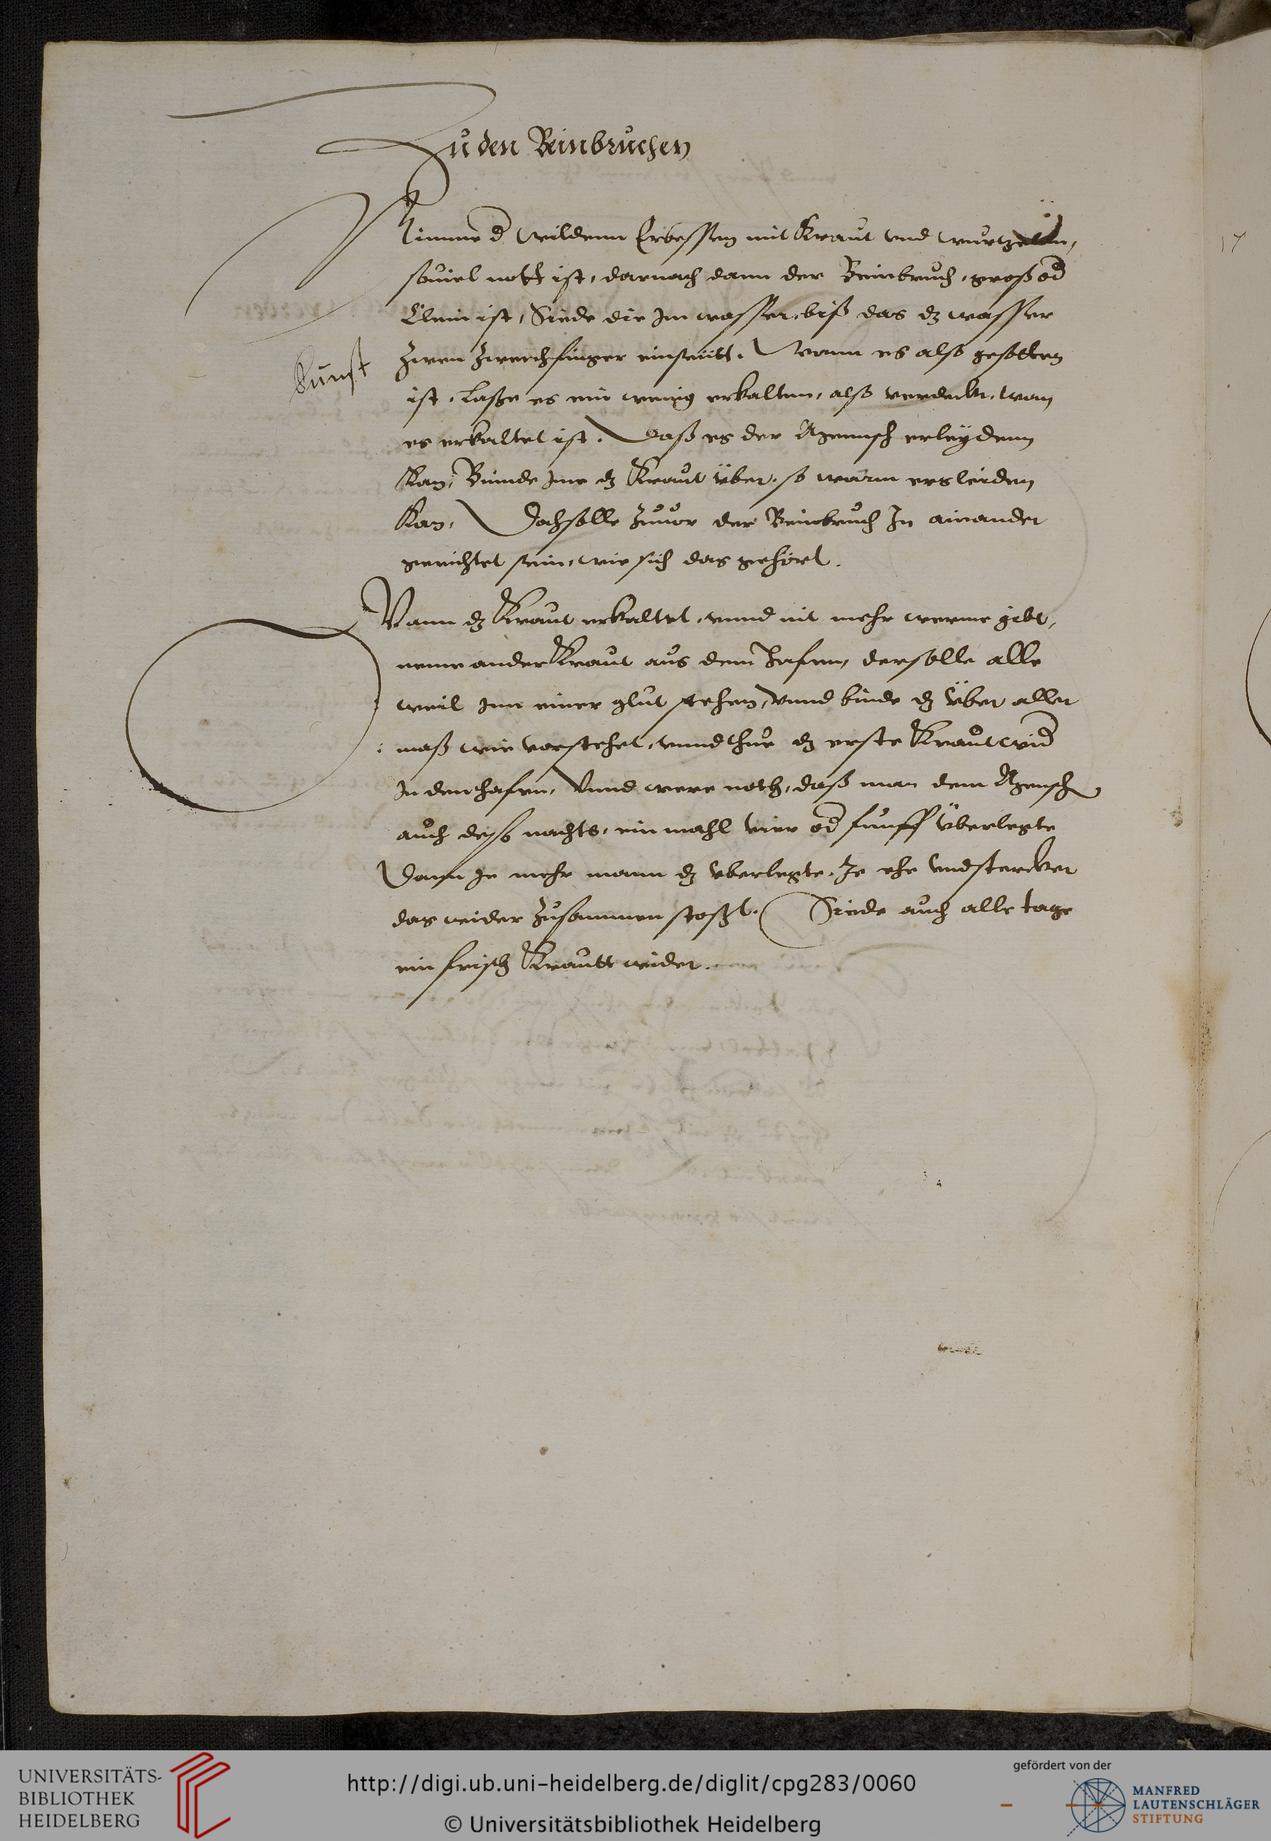 Zu den Beinbruchen
Nimme d wildenn Erbessen mit Kraut vnd wurtzelln,
souiel nott ist, darnach dann der Beinbruch, groß od
Klein ist, Siede die Im wasser, biß das dz wasser
zwen zwerchfinger einseütt. Wann es also gesotten
Kunst
ist, Laße es ein wenig erkalten, also verdeckt, wan
es erkaltet ist. Daß es der Mennsch erleydenn
Kan, Binnde Ime dz Kraut über, so warm ers leiden
Kan, Doch solle zuuor der Beinbruch In ainander
gerichtet sein, wie sich das gehört.
Wann dz Kraut erkaltet, vnnd nit mehr werme gibt,
neme ander Kraut aus dem Hafen, der solle alle
weil Inn einer glut stehen, Vnnd binde dz über aller
maß wie vorstehet, vnnd thue dz erste Kraut wid
In den hafen, Vnnd were noth, daß man dem Mensch
auch deß nachts, ein mahl vier od funff überlegte
Dann Je mehr mann dz vberlegte, Je ehe vnd stercker
das wider zusammen stoßt. Siede auch alle tage
ein frisch Krautt wider.
17
UNIVERSITÄTS-
BIBLIOTHEK
HEIDELBERG
http://digi.ub.uni-heidelberg.de/diglit/cpg283/0060
© Universitätsbibliothek Heidelberg
gefördert von der
MANFRED
LAUTENSCHLÄGER
STIFTUNG